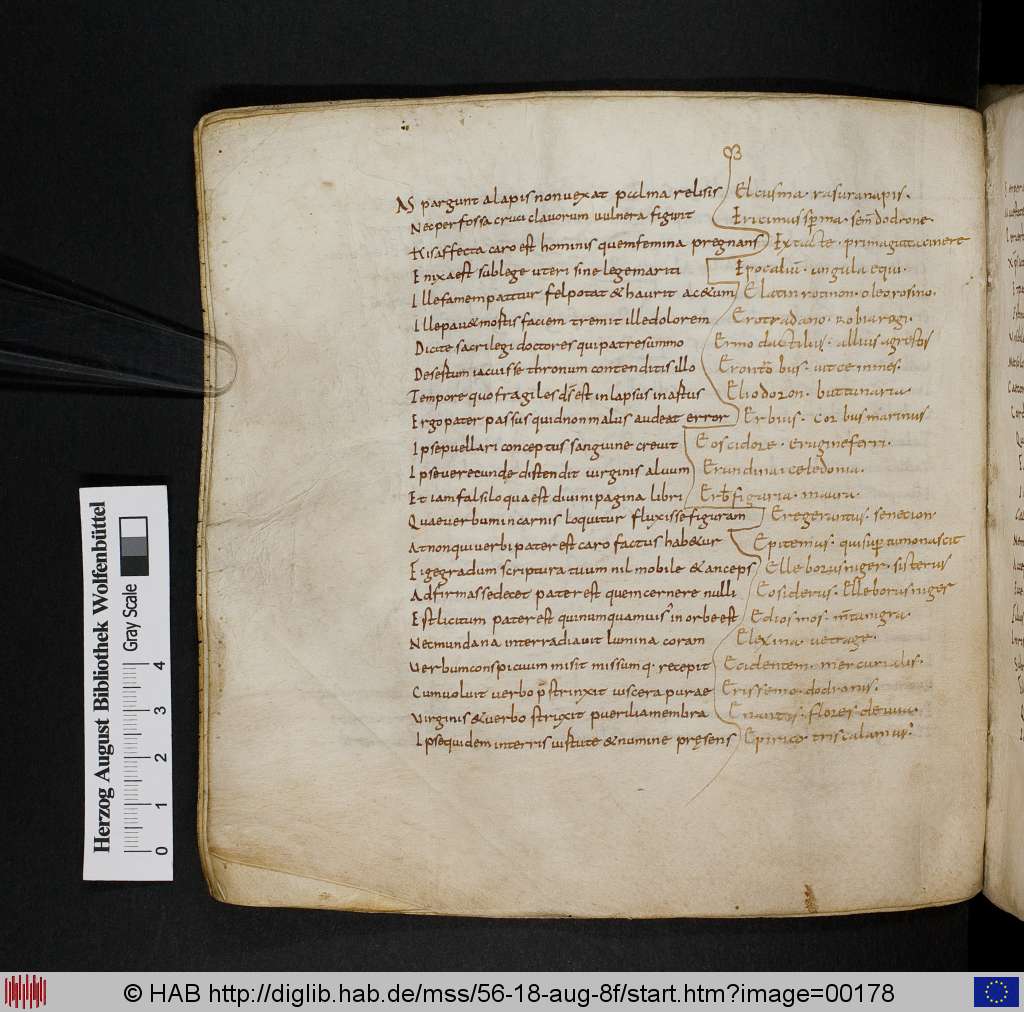 AS pargunt alapis non vexat palma relisis
Nec perfossa cruci clavorum vulnera figunt
Kisaffecta caro est hominis quem femina pregnans
Enixa est sub lege uteri sine lege mariti
Ille famem patitur fel potat & haurit ac&um
Ille pav& mostis faciem tremit ille dolorem
Dicite sacrilegi doctores qui patre summo
Desestum iacuisse thronum contenditis illo
Tempore quo fragiles ds est inlapsus in astus
Ergo pater passus quid non malus audeat error
Ipse puellari conceptus sanguine crevit
Ipse verecunde distendit virginis alvum
Et iam falsiloqua est divini pagina libri
Quae verbum in carnis loquitur fluxisse figuram
At non qui verbi pater est caro factus hab&ur
Eigegradum scriptura tuum nil mobile & anceps
Adfirmasse decet pater est quem cernere nulli
Est licitum pater est qui numquam visus in orbe est
Nec mundana inter radiavit lumina coram
Verbum conspicuum misit missumq. recepit
Cum voluit verbo pstrinxit viscera purae
Virginis & verbo strixit puerilia membra
Ipse quidem in terris vistute & numine presens
Elcusma · rasura napis ·
Ericimus sperma · sen dodrone
Extacte · prima gutta cinere
Epocaliu · ungula equi ·
Elatin rotinon · oleo rosino ·
Erotradano · robia regi ·
Ermo dactilus · allius agrestis
Eliodoron · butturaria
Erbius · cor bus marinus
Eoscidore · erugine ferri ·
Erundina i celedonia ·
Erb figaria · maura ·
Eregeruntus · senecion
Epitemus · qui super tumo nascit
Elleborus niger · sisterus
Eosiderus · Elleborus niger
Ediosmos · mta nigra ·
Elexina · vetrage ·
Ecidentem · mercurialis ·
Erissemo · dodranus ·
Enantes · flores de vina ·
Epirico · triscalamus ·
Herzog August Bibliothek Wolfenbüttel
Gray Scale
0 1 2 3 4
© HAB http://diglib.hab.de/mss/56-18-aug-8f/start.htm?image=00178